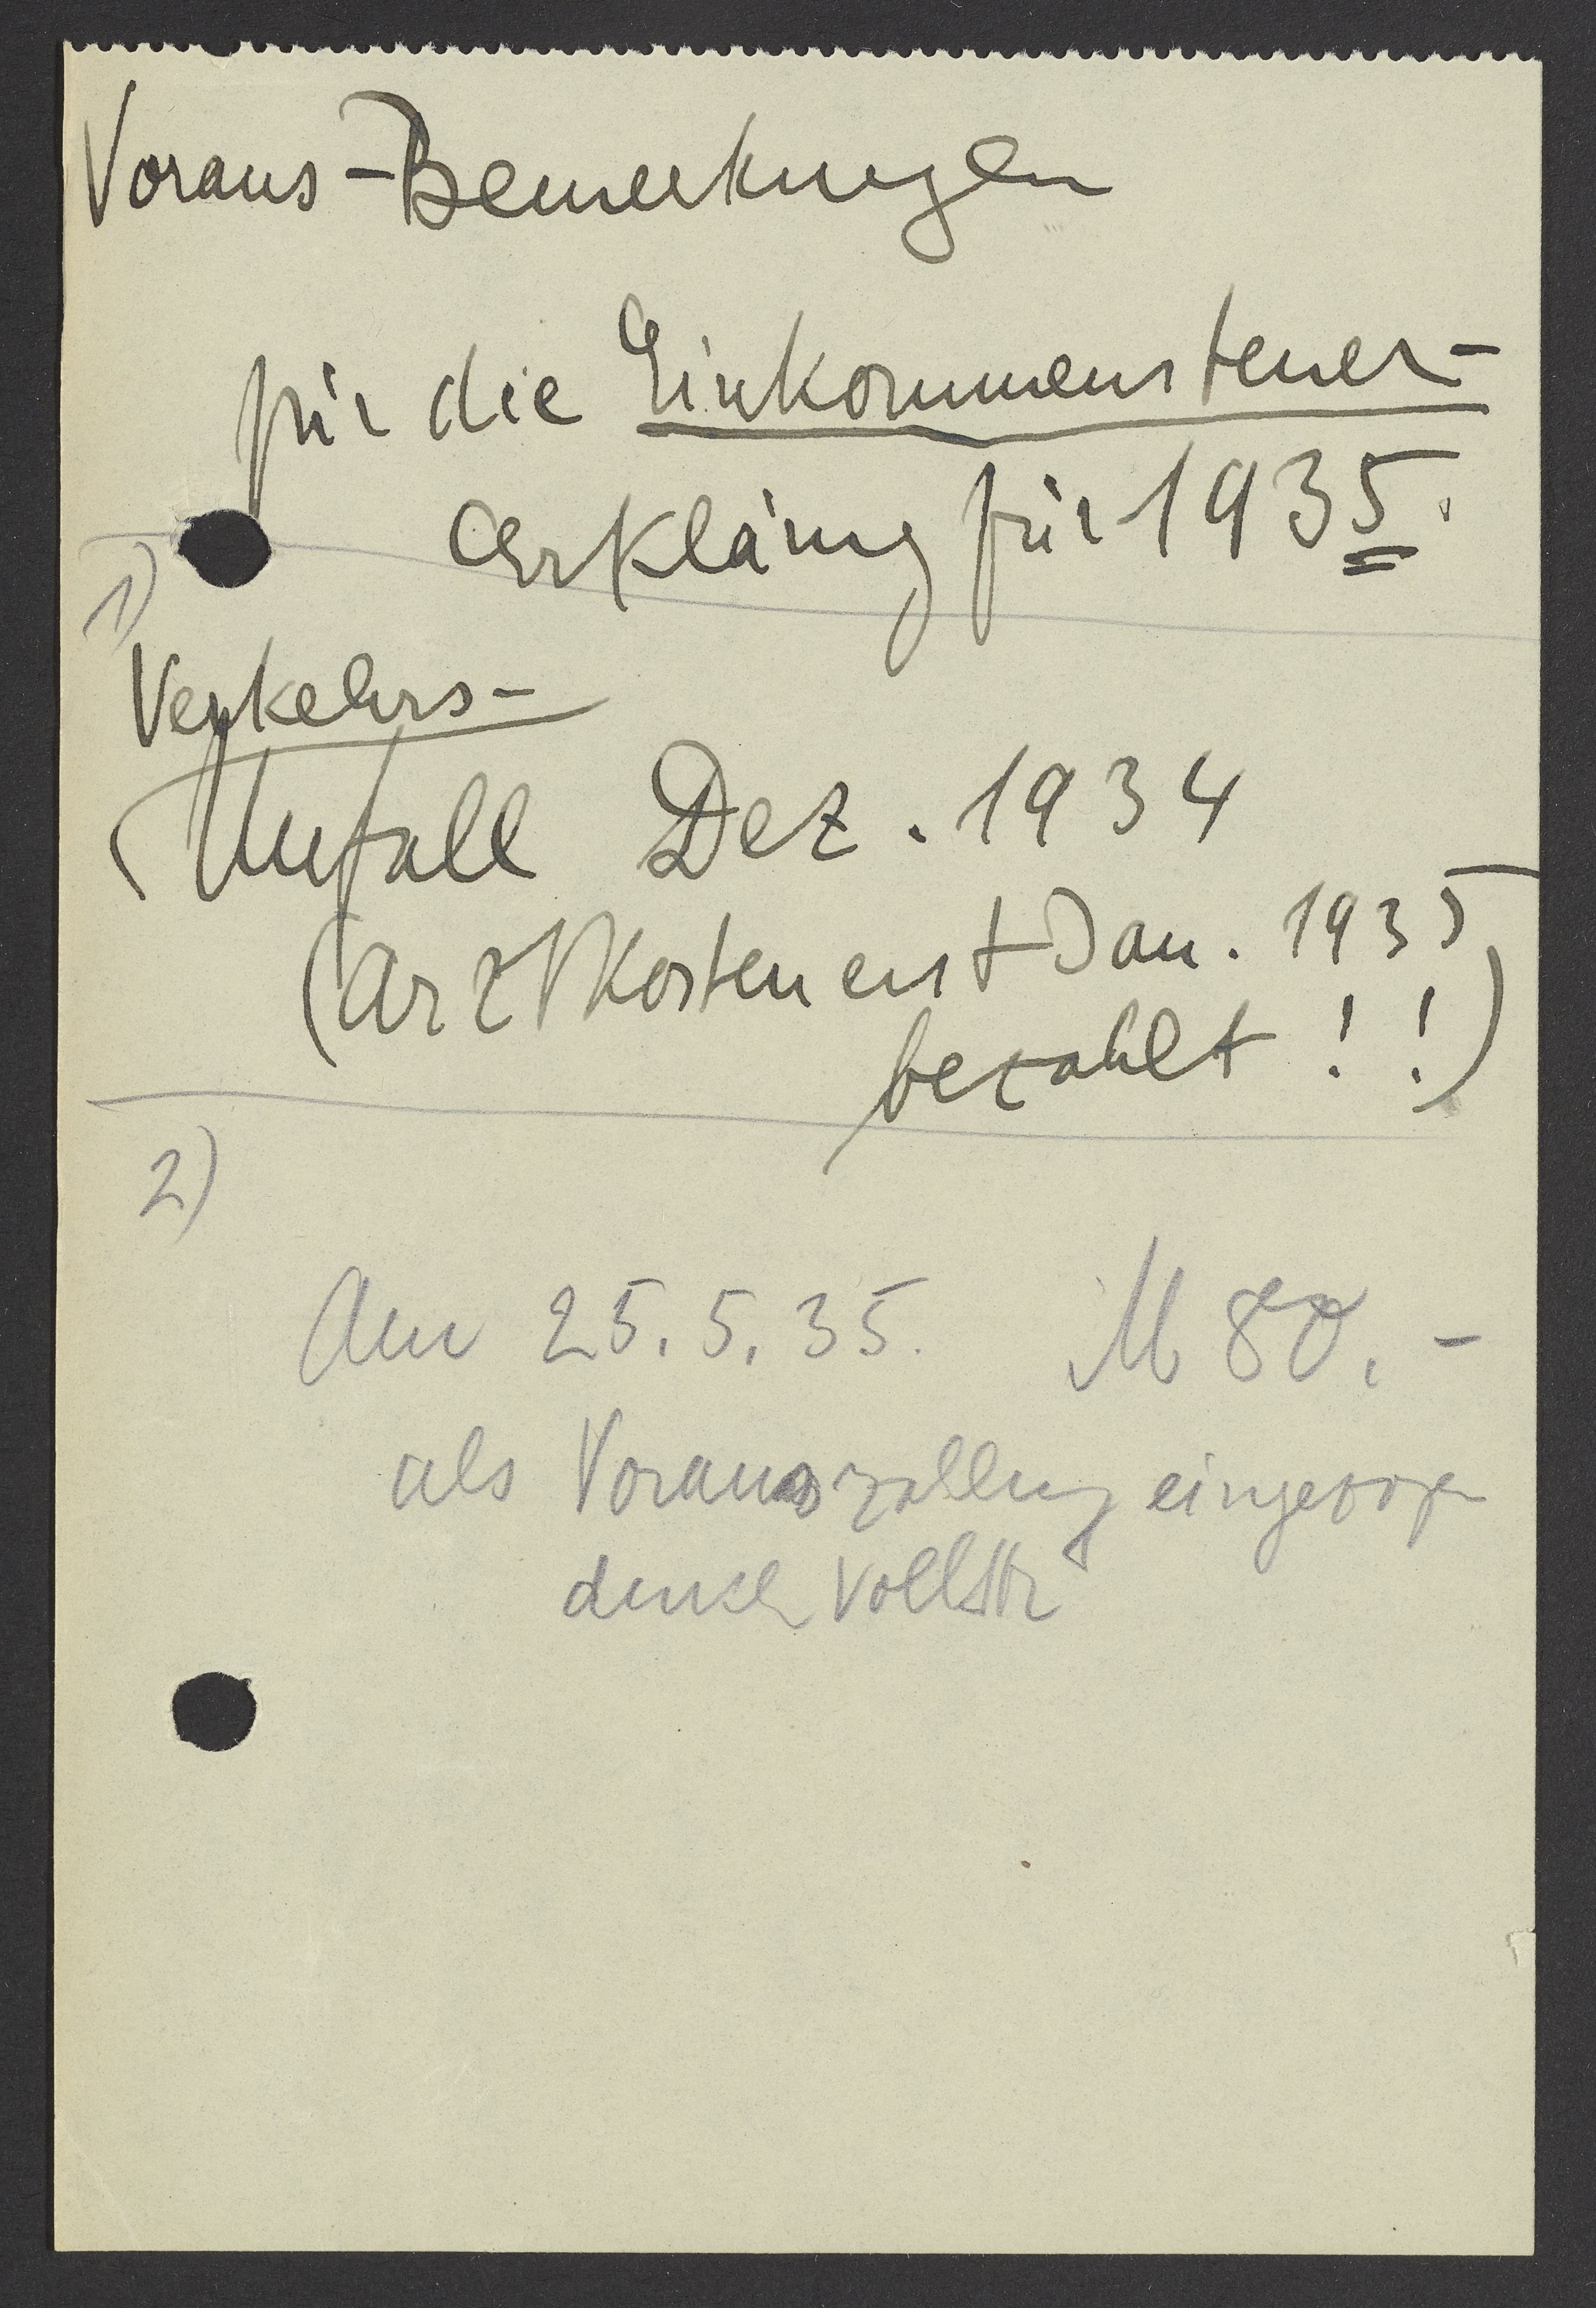 Voraus-Bemerkungen
für die Einkommensteuer-
erklärung für 1935.
1)
Verkehrs-
Unfall Dez. 1934
(Arztkosten erst Jan. 1935
bezahlt!!)
2)
Am 25.5.35. M 80.-
als Vorauszahlung eingezogen
durch